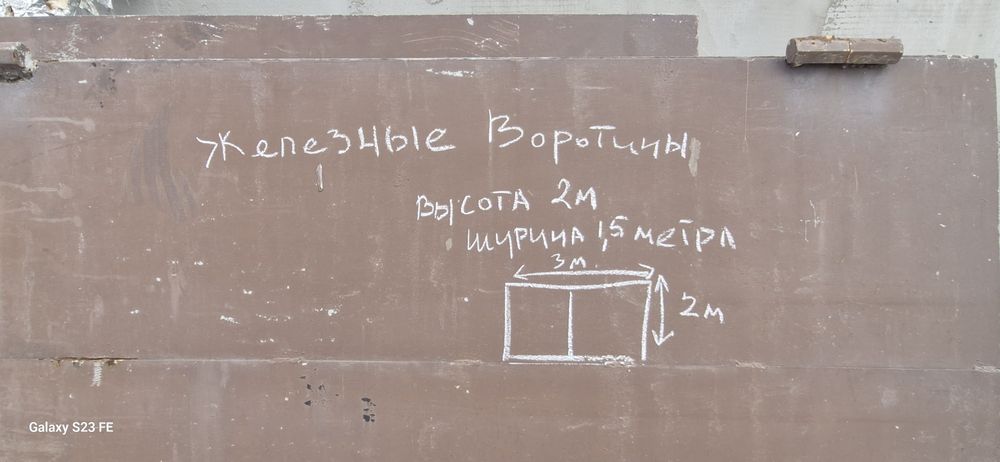 Железные Воротины
Высота 2м
Шурина 1,5 метра
3м
2м
Galaxy S23 FE